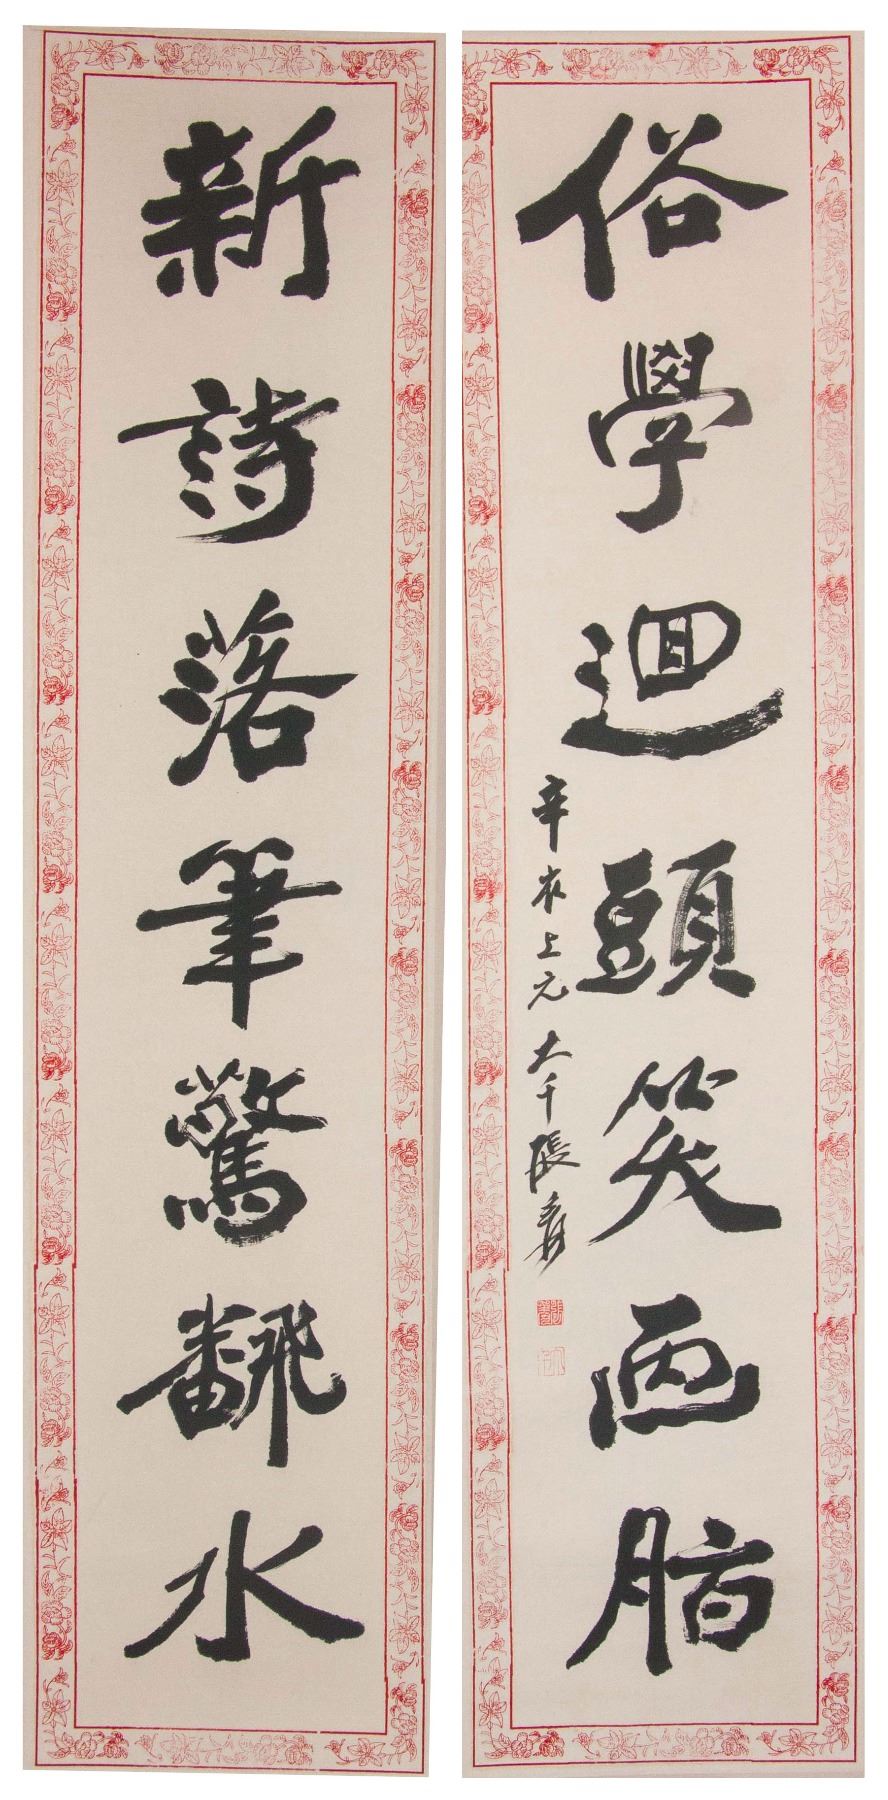 新詩落筆驚飜水
俗學迴頭笑画脂
辛亥上元 大千張爰